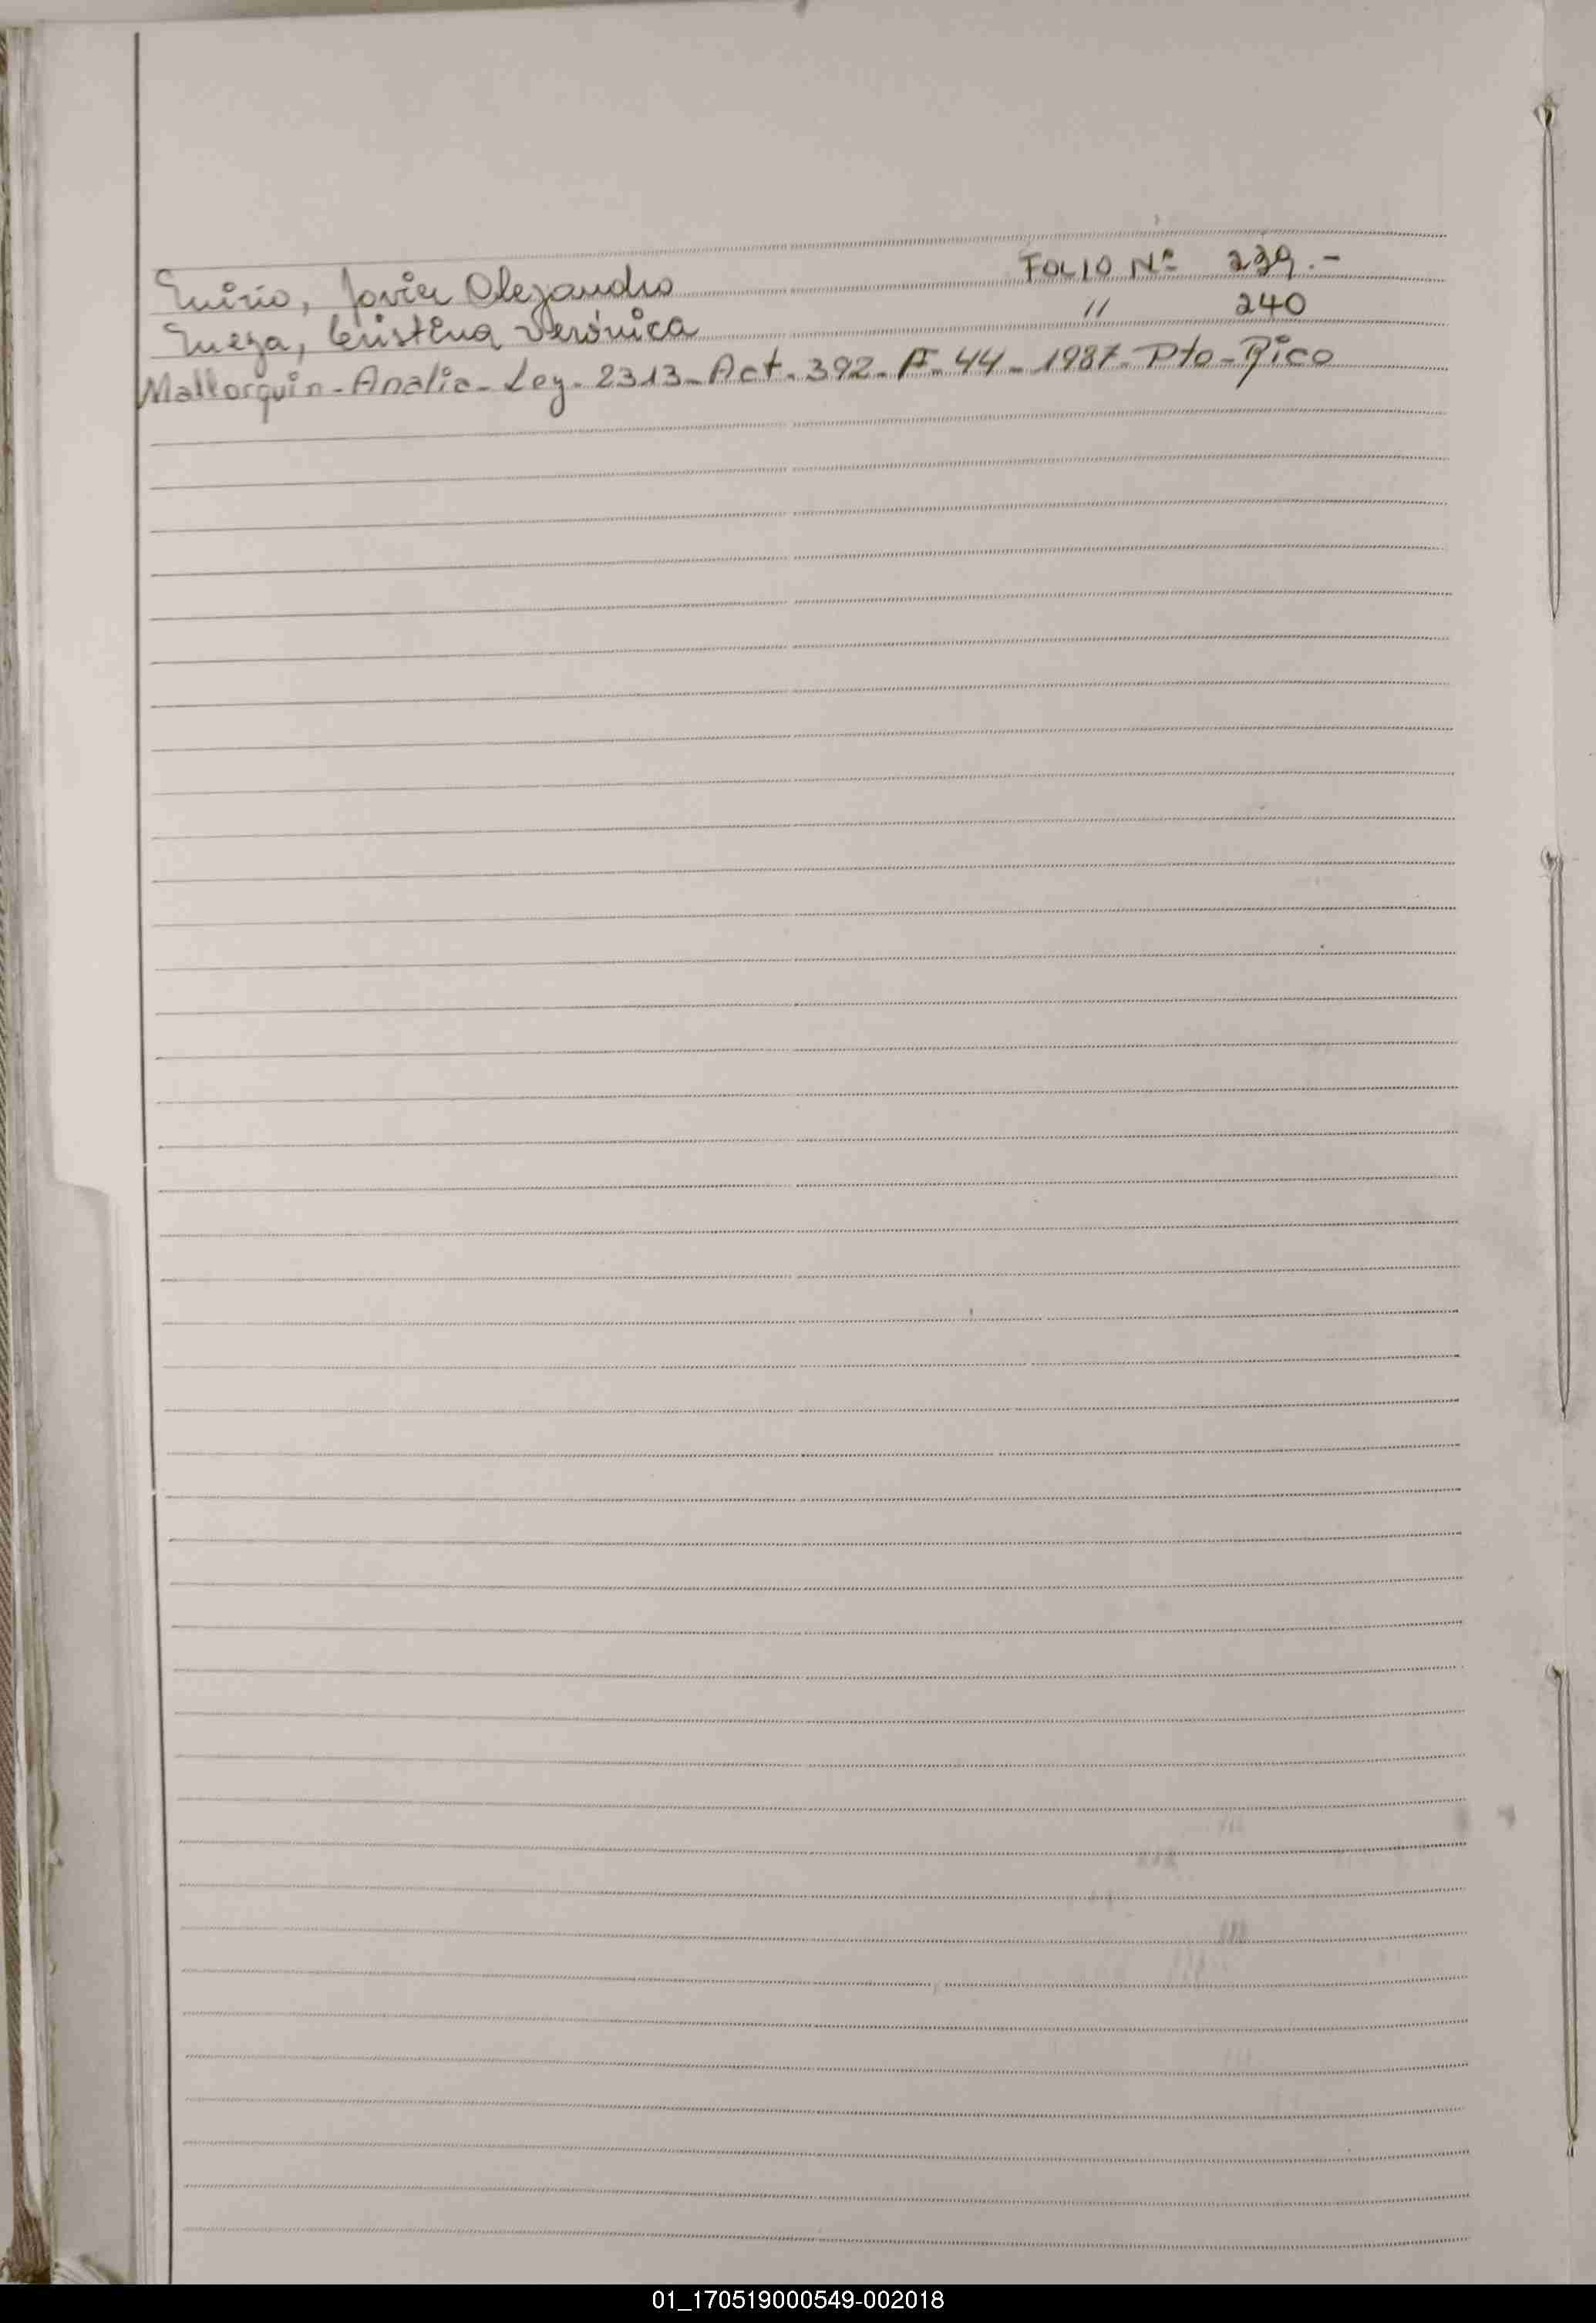 Javier Alejandro FOLIO Nº 239.-
Meza, Cristina Verónica // 240
Mallorquin - Analia - Ley. 2313 - Act. 392 - F. 44 - 1987 - Pto - Rico
01_170519000549-002018